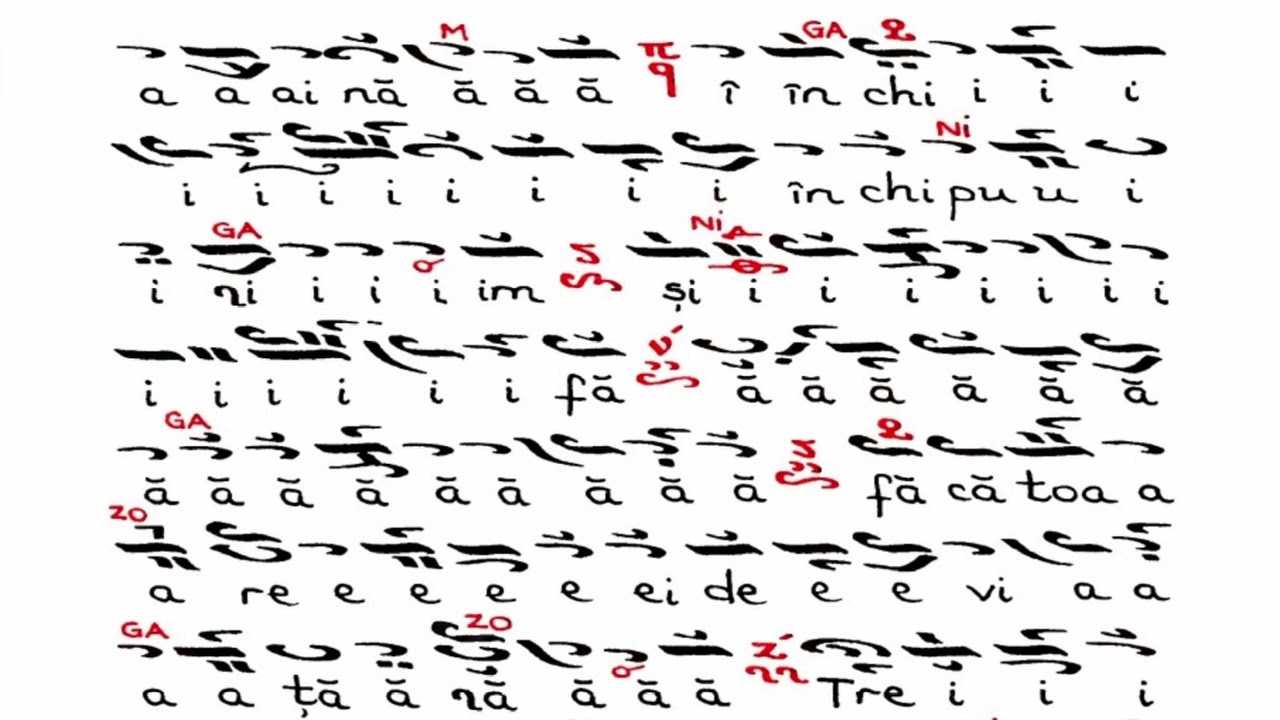 M GA
π q
a a ai nă ă ă ă î în chi i i i
Ni
i i i i i i i i în chi pu u i
GA Ni
i ri i i i im și i i i i i i i
i i i i i i fă ă ă ă ă ă ă
GA
ă ă ă ă ă ă ă ă ă fă că toa a
ZO
a re e e e e ei de e e vi a a
GA ZO
ź
a a ță ă ră ă ă ă Tre i i i